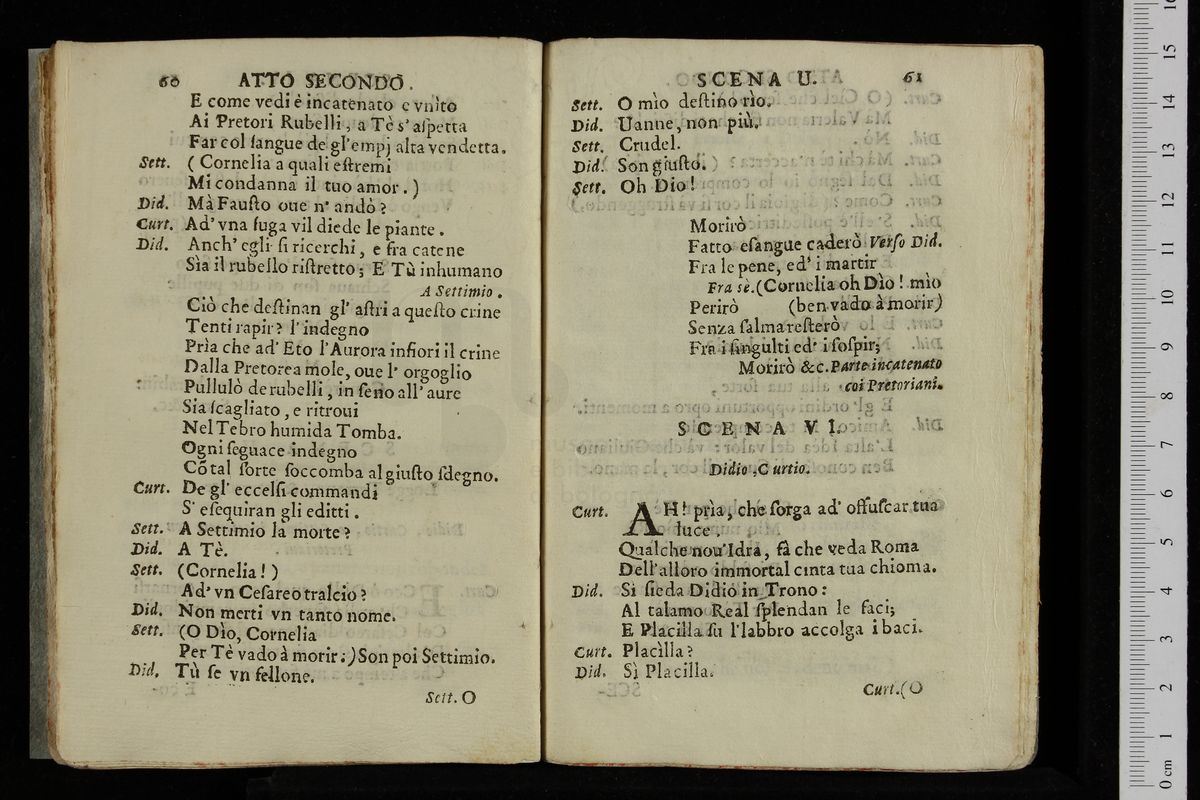 60 ATTO SECONDO.
E come vedi è incatenato e vnìto
Ai Pretori Rubelli, a Tè s'aſpetta
Far col ſangue de gl'empj alta vendetta.
Sett. (Cornelia a quali eſtremi
Mi condanna il tuo amor.)
Did. Mà Fauſto oue n'andò?
Curt. Ad'vna fuga vil diede le piante.
Did. Anch'egli ſi ricerchi, e fra catene
Sia il rubello riſtretto; E Tù inhumano
A Settimio.
Ciò che deſtinan gl'aſtri a queſto crine
Tenti rapir? l'indegno
Prìa che ad'Eto l'Aurora infiori il crine
Dalla Pretorea mole, oue l'orgoglio
Pullulò de rubelli, in ſeno all'aure
Sia ſcagliato, e ritroui
Nel Tebro humida Tomba.
Ogni ſeguace indegno
Cõ tal ſorte ſoccomba al giuſto ſdegno.
Curt. De gl'eccelſi commandi
S'eſequiran gli editti.
Sett. A Settimio la morte?
Did. A Tè.
Sett. (Cornelia!)
Ad'vn Ceſareo tralcio?
Did. Non merti vn tanto nome.
Sett. (O Dìo, Cornelia
Per Tè vado à morir;) Son poi Settimio.
Did. Tù ſe vn fellone.
Sett. O
SCENA U. 61
Sett. O mìo deſtino rìo.
Did. Uanne, non più.
Sett. Crudel.
Did. Son giuſto.
Sett. Oh Dio!
Morirò
Fatto eſangue caderò Verſo Did.
Fra le pene, ed'i martir
Fra sè. (Cornelia oh Dìo! mìo
Perirò (ben vado à morir)
Senza ſalma reſterò
Fra i ſingulti ed'i ſoſpir;
Morirò &c. Parte incatenato
coi Pretoriani.
SCENA VI.
Didio, Curtio.
Curt. AH! prìa, che ſorga ad'offuſcar tua
luce.
Qualche nou'Idra, fà che veda Roma
Dell'alloro immortal cinta tua chioma.
Did. Si ſieda Didio in Trono:
Al talamo Real ſplendan le faci;
E Placilla ſu l'labbro accolga i baci.
Curt. Placìlla?
Did. Sì Placilla.
Curt. (O
0 cm 1 2 3 4 5 6 7 8 9 10 11 12 13 14 15